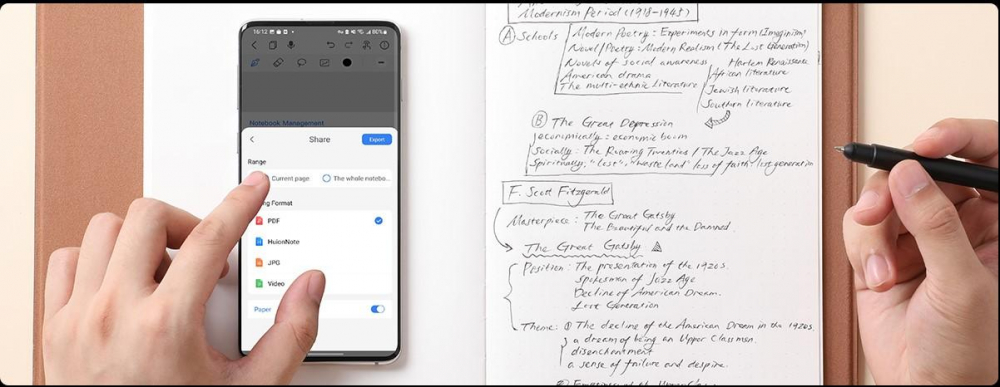 16:12
80%
Notebook Management
Share
Export
Range
Current page
The whole notebo...
ng Format
PDF
HuionNote
JPG
Video
Paper
Modernism Period (1918-1945)
Ⓐ Schools
Modern Poetry: Experiments in form (Imaginism)
Novel/Poetry: Modern Realism (The Lost Generation)
Novels of social awareness
American drama
The multi-ethnic literature
Harlem Renaissance
African literature
Jewish literature
Southern literature
Ⓑ The Great Depression
economically: economic boom
Socially: The Roaring Twenties / The Jazz Age
Spiritually: "Lost", "waste land" loss of faith lost generation
F. Scott Fitzgerald
Masterpiece: The Great Gatsby
The Beautiful and the Damned
The Great Gatsby
Position: The presentation of the 1920s
Spokesman of Jazz Age
Decline of American Dream.
Lost Generation
Theme: ① The decline of the American Dream in the 1920s
a dream of being an Upper Classmen.
disenchantment
a sense of failure and despire.